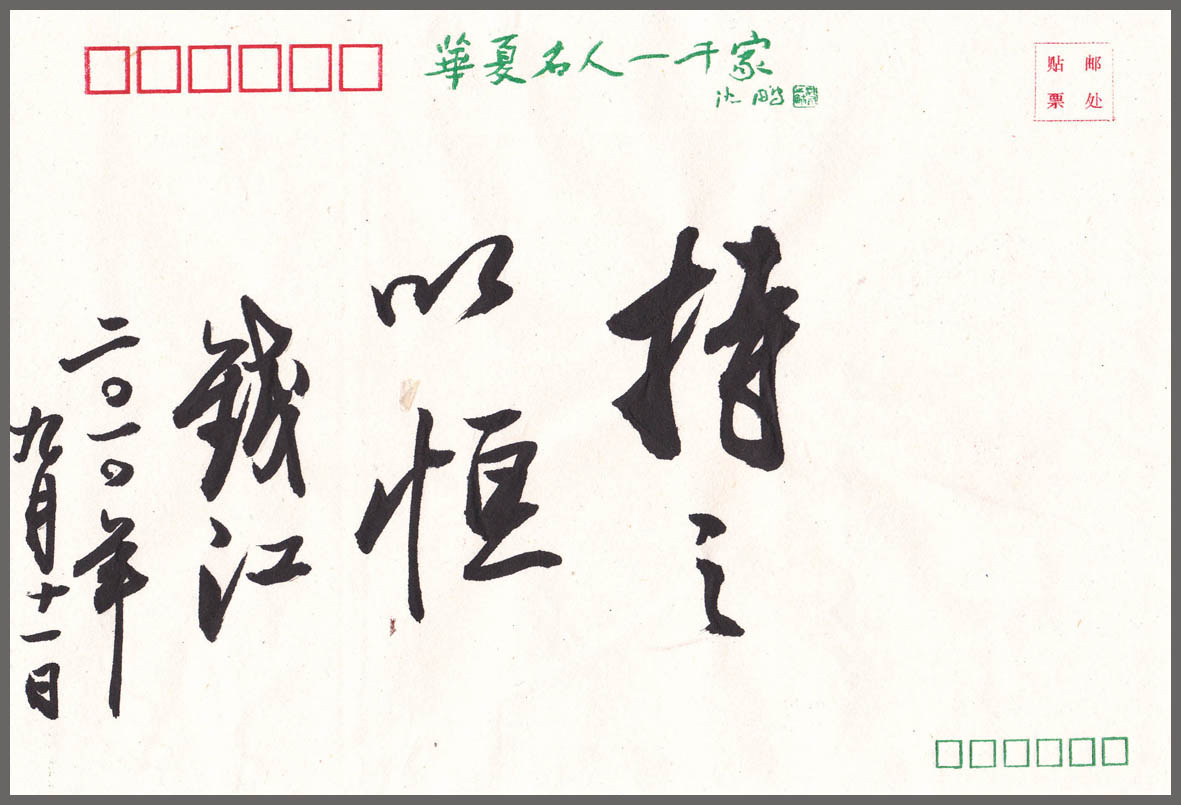 華夏名人一千家
沈鹏
贴邮
票处
持之
以恒
錢江
二〇一〇年
九月十一日